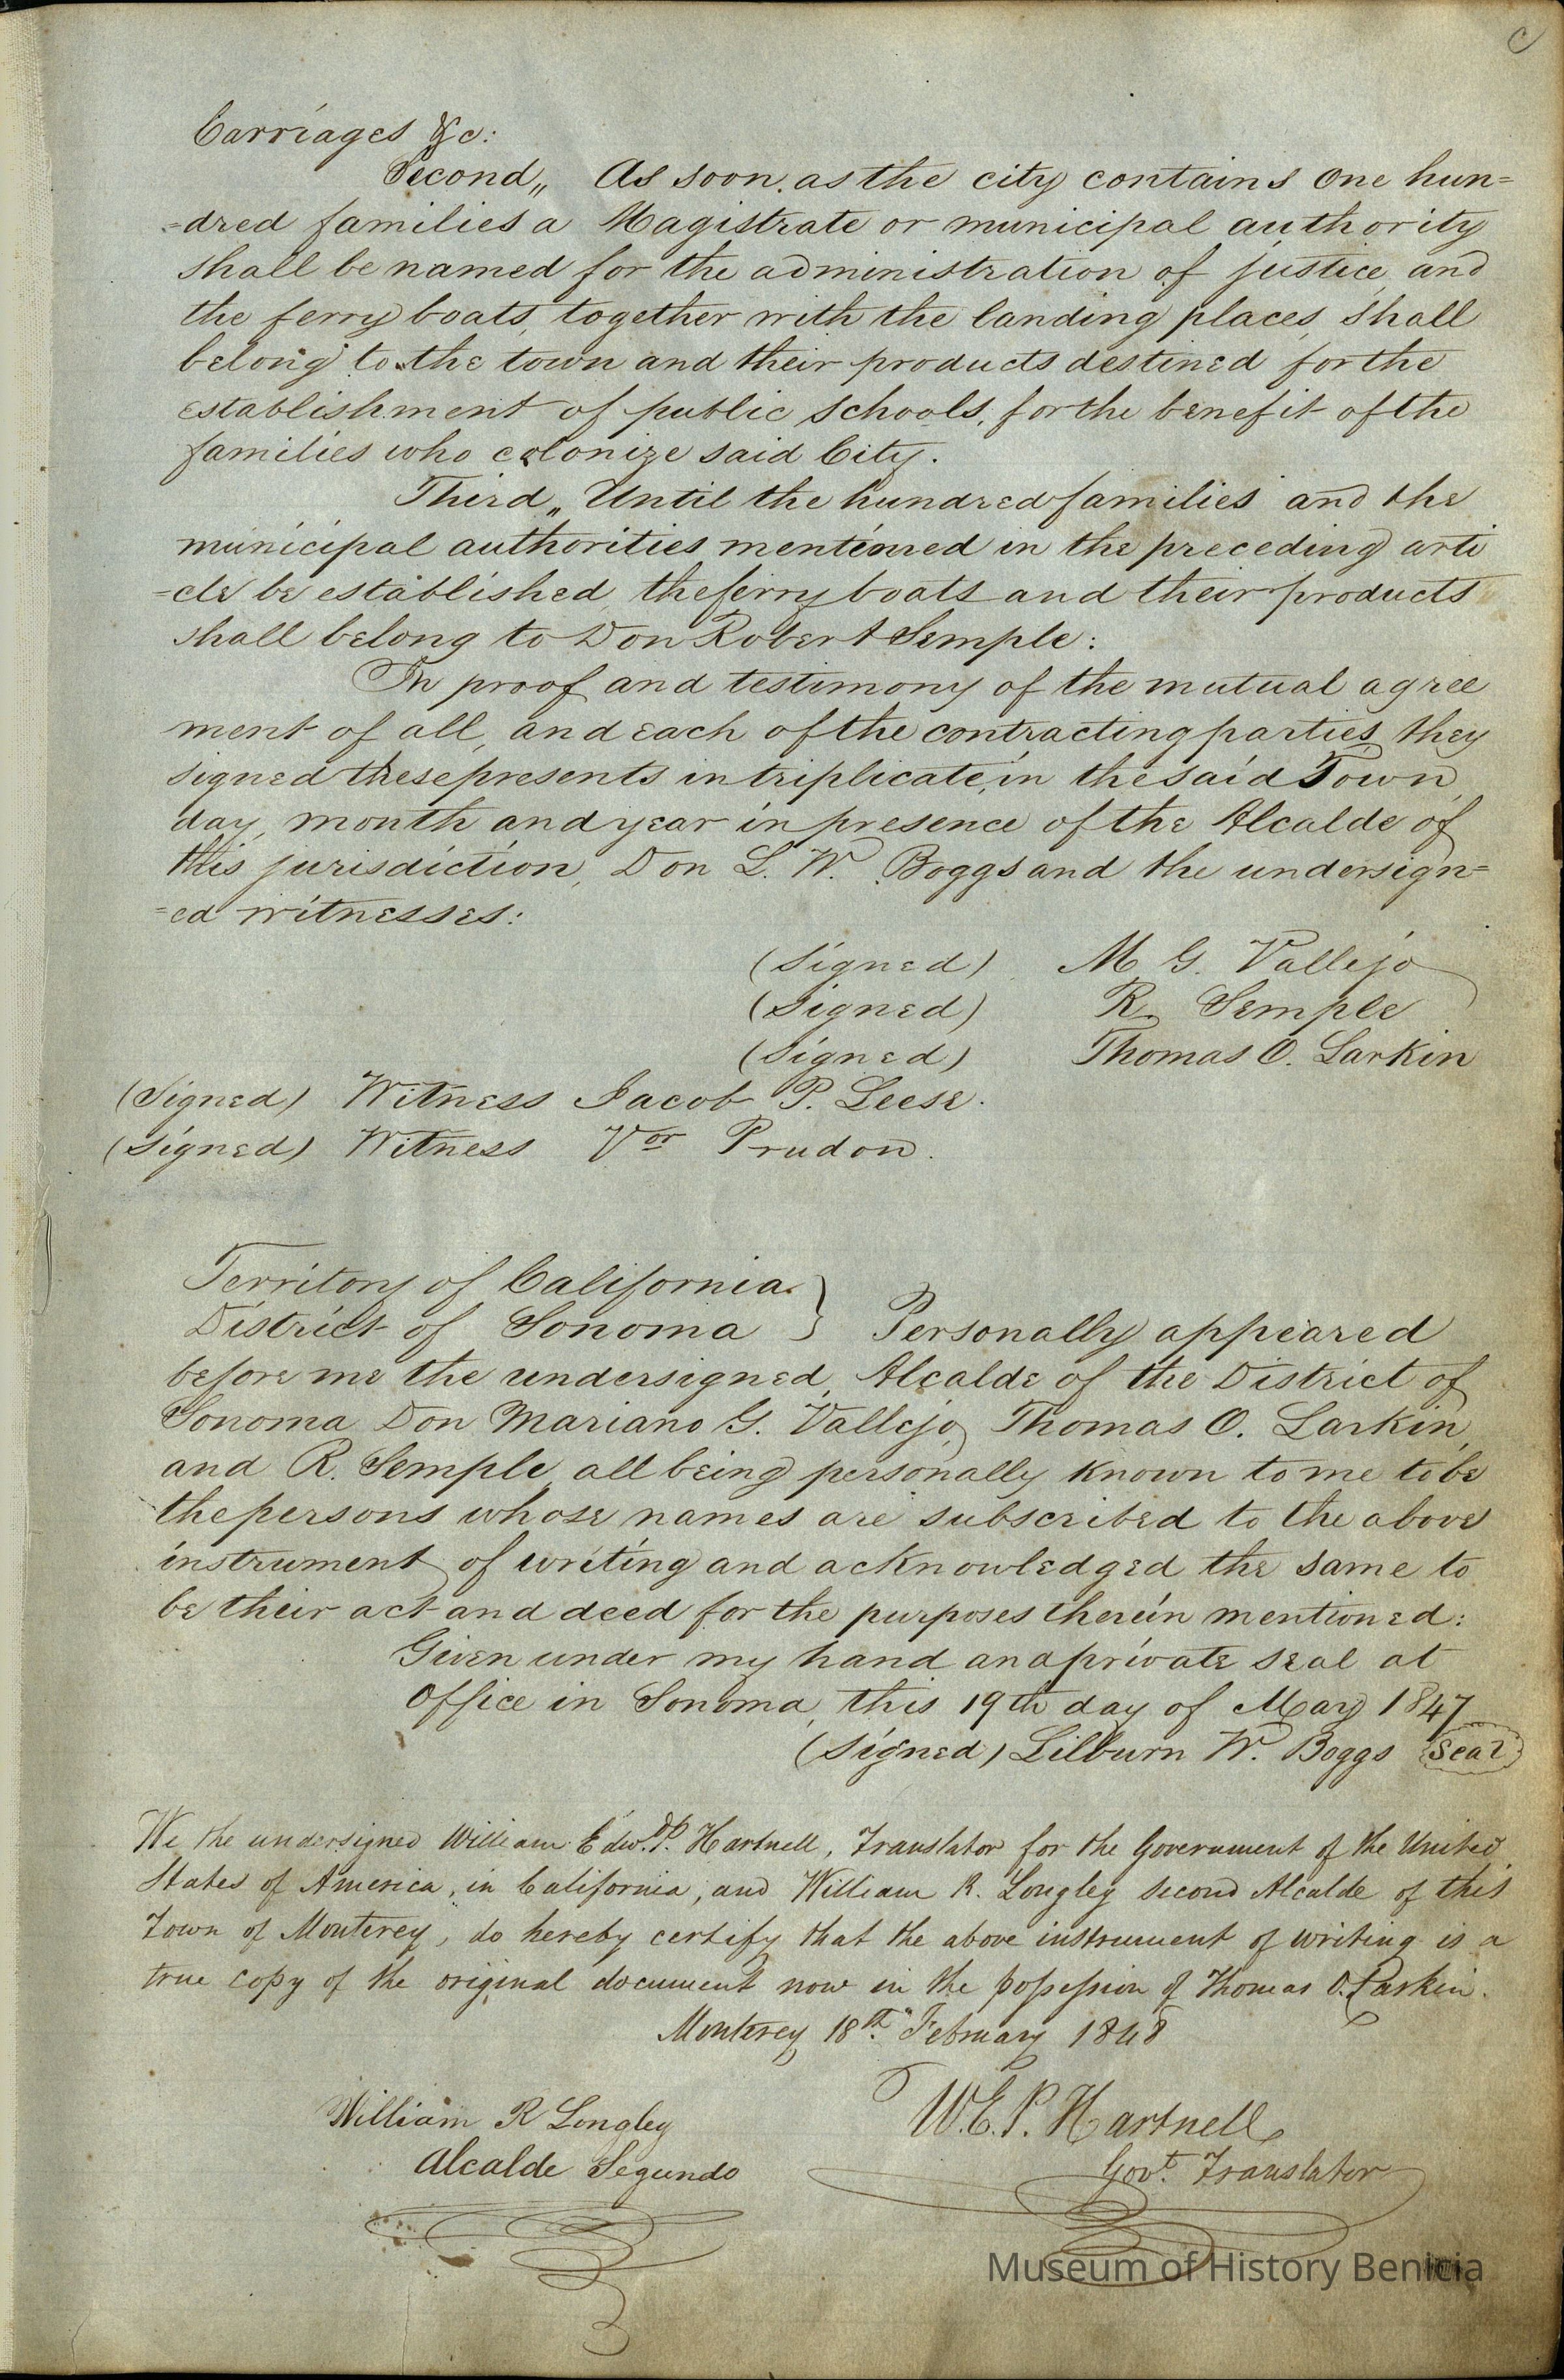 C
Carriages &c:
Second,, As soon as the city contains One hun=
=dred families a Magistrate or municipal authority
shall be named for the administration of justice, and
the ferry boats, together with the landing places, shall
belong to the town and their products destined for the
establishment of public schools, for the benefit of the
families who colonize said City.
Third,, Until the hundred families and the
municipal authorities mentioned in the preceding arti
=cle be established, the ferry boats and their products
shall belong to Don Robert Semple:
In proof and testimony of the mutual agree
ment of all, and each of the contracting parties, they
signed these presents in triplicate, in the said Town,
day, month and year in presence of the Alcalde of
this jurisdiction, Don L. W. Boggs and the undersign=
=ed witnesses:
(Signed) M G. Vallejo
(Signed) R. Semple
(Signed) Thomas O. Larkin
(Signed) Witness Jacob P. Leese.
(Signed) Witness Vor Prudon.
Territory of California }
District of Sonoma } Personally appeared
before me the undersigned, Alcalde of the District of
Sonoma Don Mariano G. Vallejo, Thomas O. Larkin,
and R. Semple, all being personally known to me to be
the persons whose names are subscribed to the above
instrument of writing and acknowledged the same to
be their act and deed for the purposes therein mentioned:
Given under my hand and private seal at
Office in Sonoma, this 19th day of May 1847
(Signed) Lilburn W. Boggs Seal
We the undersigned William Edwd. P. Hartnell, Translator for the Government of the United
States of America, in California, and William R. Longley second Alcalde of this
Town of Monterey, do hereby certify that the above instrument of writing is a
true copy of the original document now in the possession of Thomas O. Larkin.
Monterey 18th. February 1848
William R Longley W.E.P. Hartnell
Alcalde Segundo Govt. Translator
Museum of History Benicia